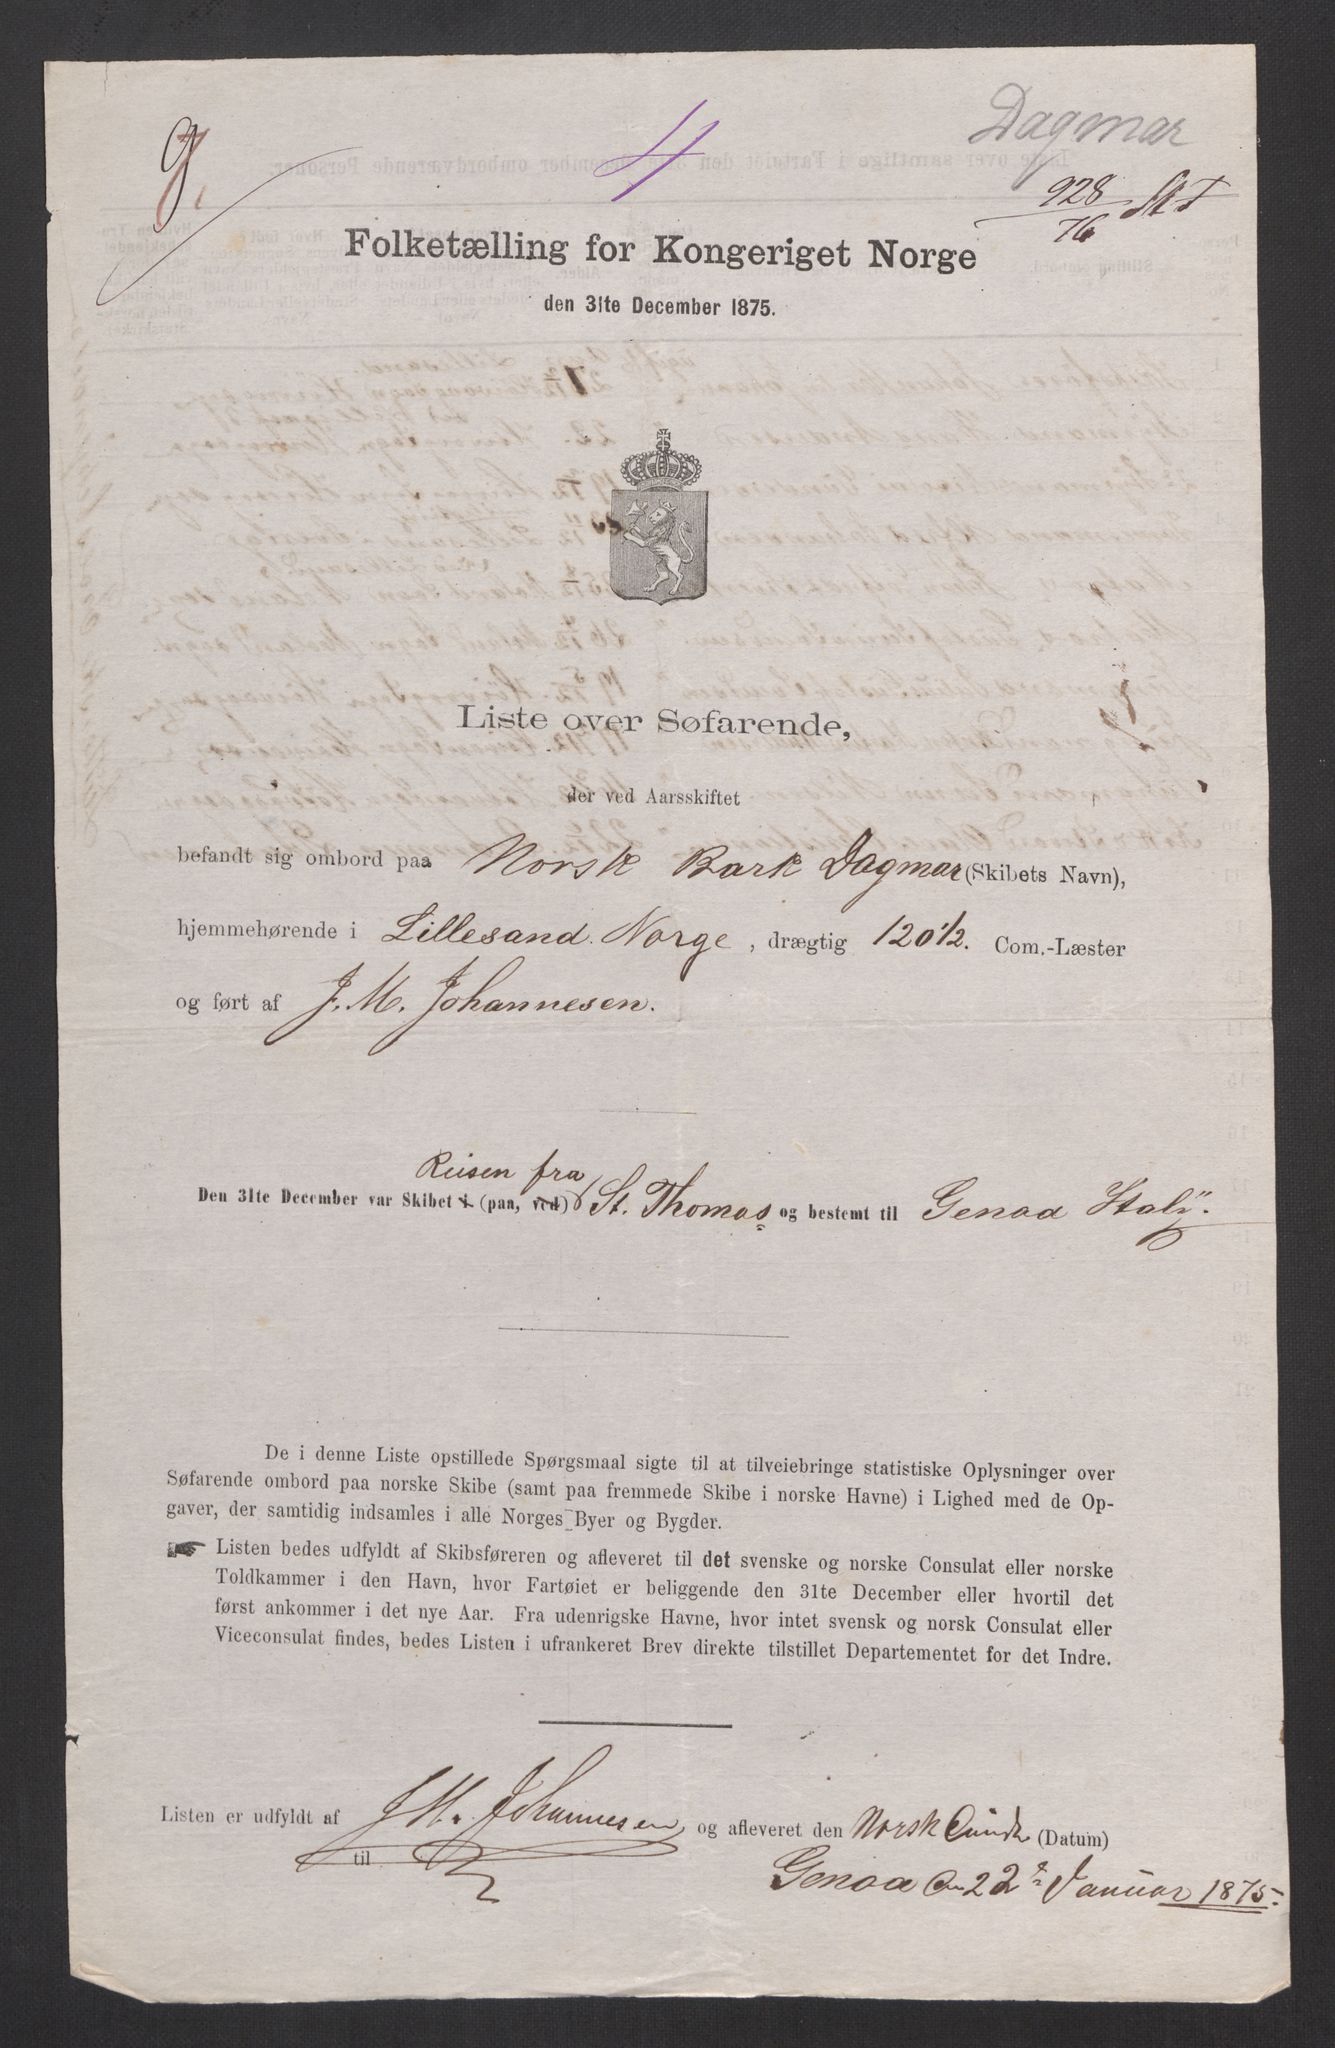 Dagmar
9.
4
928
76
Folketælling for Kongeriget Norge
den 31te December 1875.
Liste over Søfarende,
der ved Aarsskiftet
befandt sig ombord paa Norsk Bark Dagmar (Skibets Navn),
hjemmehørende i Lillesand. Norge, drægtig 120 1/2. Com.-Læster
og ført af J. M. Johannesen.
Reisen fra
Den 31te December var Skibet i (paa, ved) St. Thomas og bestemt til Genoa Italÿ.
De i denne Liste opstillede Spørgsmaal sigte til at tilveiebringe statistiske Oplysninger over
Søfarende ombord paa norske Skibe (samt paa fremmede Skibe i norske Havne) i Lighed med de Op-
gaver, der samtidig indsamles i alle Norges Byer og Bygder.
☛ Listen bedes udfyldt af Skibsføreren og afleveret til det svenske og norske Consulat eller norske
Toldkammer i den Havn, hvor Fartøiet er beliggende den 31te December eller hvortil det
først ankommer i det nye Aar. Fra udenrigske Havne, hvor intet svensk og norsk Consulat eller
Viceconsulat findes, bedes Listen i ufrankeret Brev direkte tilstillet Departementet for det Indre.
Listen er udfyldt af J M. Johannesen og afleveret den Norsk (Datum)
til
Genoa 22 Januar 1875.